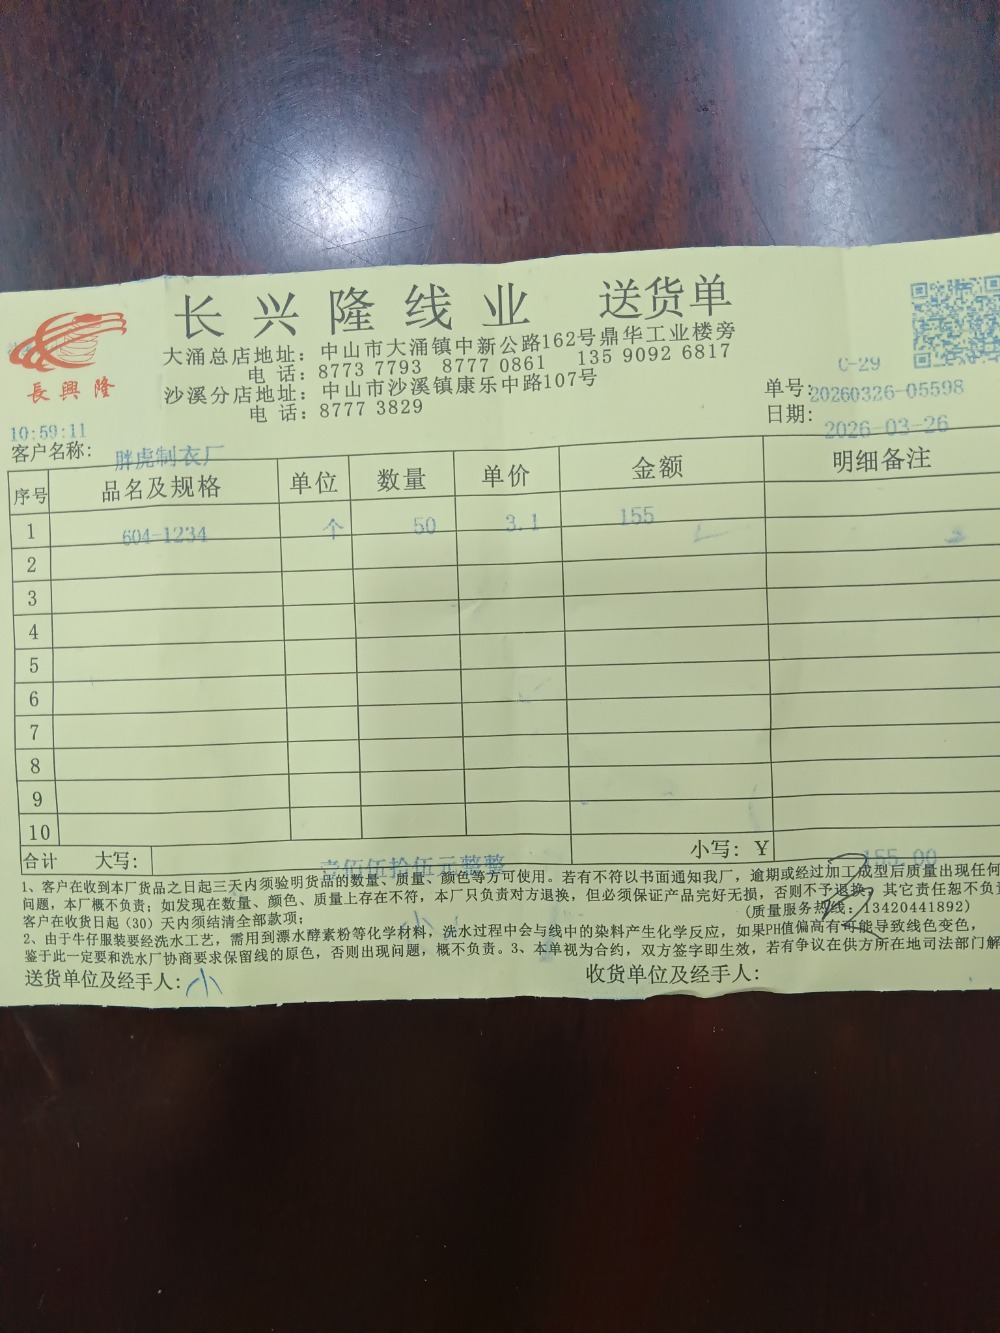 长兴隆线业 送货单
大涌总店地址：中山市大涌镇中新公路162号鼎华工业楼旁
电 话：8773 7793 8777 0861 135 9092 6817
沙溪分店地址：中山市沙溪镇康乐中路107号
电 话：8777 3829
長興隆
C-29
单号：20260326-05598
日期：2026-03-26
10:59:11
客户名称：胖虎制衣厂
序号 品名及规格 单位 数量 单价 金额 明细备注
1 604-1234 个 50 3.1 155
2
3
4
5
6
7
8
9
10
合计 大写：壹佰伍拾伍元整整 小写：¥ 155.00
1、客户在收到本厂货品之日起三天内须验明货品的数量、质量、颜色等方可使用。若有不符以书面通知我厂，逾期或经过加工成型后质量出现任何
问题，本厂概不负责；如发现在数量、颜色、质量上存在不符，本厂只负责对方退换，但必须保证产品完好无损，否则不予退换，其它责任恕不负责
客户在收货日起（30）天内须结清全部款项；
(质量服务热线：13420441892)
2、由于牛仔服装要经洗水工艺，需用到漂水酵素粉等化学材料，洗水过程中会与线中的染料产生化学反应，如果PH值偏高有可能导致线色变色，
鉴于此一定要和洗水厂协商要求保留线的原色，否则出现问题，概不负责。3、本单视为合约，双方签字即生效，若有争议在供方所在地司法部门解
送货单位及经手人：小
收货单位及经手人：